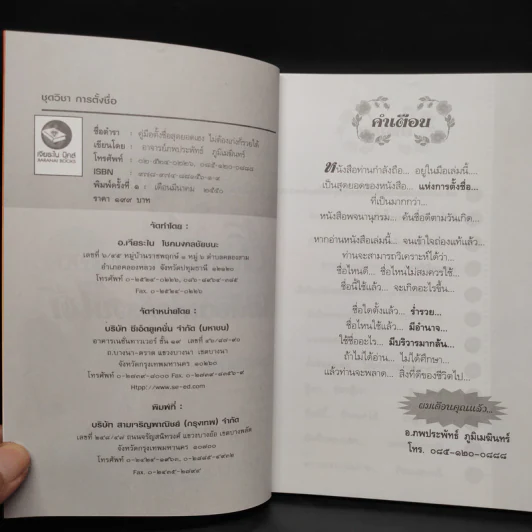 ชุดวิชา การตั้งชื่อ
เจียระไน บุ๊คส์
JIARANAI BOOKS
ชื่อตำรา : คู่มือตั้งชื่อสุดยอดเฮง ไม่ต้องเก่งก็รวยได้
เขียนโดย : อาจารย์ภพประพัทธ์ ภูมิเมฆินทร์
โทรศัพท์ :
ISBN :
พิมพ์ครั้งที่ ๑ : เดือนมีนาคม ๒๕๕๐
ราคา ๑๙๙ บาท
จัดทำโดย :
อ.เจียระไน โชคมงคลชัยชนะ
หมู่บ้านราชพฤกษ์ ๑ หมู่ ๖ ตำบลคลองสาม
อำเภอคลองหลวง จังหวัดปทุมธานี ๑๒๑๒๐
โทรศัพท์
Fax.
จัดจำหน่ายโดย :
บริษัท ซีเอ็ดยูเคชั่น จำกัด (มหาชน)
อาคารเนชั่นทาวเวอร์ ชั้น ๑๙ เลขที่
ถ.บางนา-ตราด แขวงบางนา เขตบางนา
จังหวัดกรุงเทพมหานคร ๑๐๒๖๐
โทรศัพท์
Http://www.se-ed.com
พิมพ์ที่ :
บริษัท สามเจริญพาณิชย์ (กรุงเทพ) จำกัด
ถนนจรัญสนิทวงศ์ แขวงบางอ้อ เขตบางพลัด
จังหวัดกรุงเทพมหานคร ๑๐๗๐๐
โทรศัพท์
Fax.
คำเตือน
หนังสือท่านกำลังถือ... อยู่ในมือเล่มนี้....
เป็นสุดยอดของหนังสือ... แห่งการตั้งชื่อ...
ที่เป็นมากกว่า...
หนังสือพจนานุกรม... ค้นชื่อดีตามวันเกิด...
หากอ่านหนังสือเล่มนี้... จนเข้าใจถ่องแท้แล้ว...
ท่านจะสามารถวิเคราะห์ได้ว่า...
ชื่อไหนดี... ชื่อไหนไม่สมควรใช้...
ชื่อนี้ใช้แล้ว... จะเกิดอะไรขึ้น...
ชื่อใดตั้งแล้ว... ร่ำรวย...
ชื่อไหนใช้แล้ว... มีอำนาจ...
ใช้ชื่ออะไร... มีบริวารมากล้น...
ถ้าไม่ได้อ่าน... ไม่ได้ศึกษา...
แล้วท่านจะพลาด... สิ่งที่ดีของชีวิตไป...
ผมเตือนคุณแล้ว...
อ.ภพประพัทธ์ ภูมิเมฆินทร์
โทร. ๐๘๕-๑๒๐-๐๘๘๘